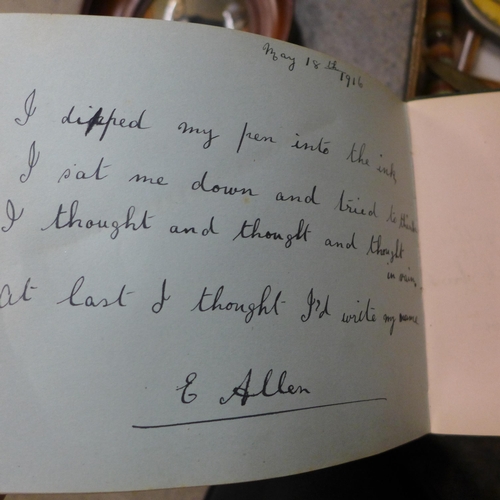 May 18th 1916
I dipped my pen into the ink
I sat me down and tried to think
I thought and thought and thought
in vain
At last I thought I'd write my name
E Allen